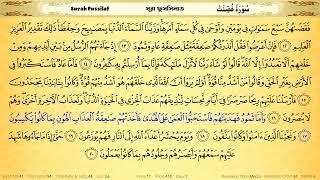 Surah Fussilat সূরা ফুসসিলাত سُورَةُ فُصِّلَتْ
فَقَضَىٰهُنَّ سَبْعَ سَمَٰوَاتٍ فِى يَوْمَيْنِ وَأَوْحَىٰ فِى كُلِّ سَمَآءٍ أَمْرَهَا وَزَيَّنَّا ٱلسَّمَآءَ ٱلدُّنْيَا بِمَصَٰبِيحَ وَحِفْظًا ذَٰلِكَ تَقْدِيرُ ٱلْعَزِيزِ
ٱلْعَلِيمِ ١٢ فَإِنْ أَعْرَضُوا۟ فَقُلْ أَنذَرْتُكُمْ صَٰعِقَةً مِّثْلَ صَٰعِقَةِ عَادٍ وَثَمُودَ ١٣ إِذْ جَآءَتْهُمُ ٱلرُّسُلُ مِنۢ بَيْنِ أَيْدِيهِمْ وَمِنْ
خَلْفِهِمْ أَلَّا تَعْبُدُوٓا۟ إِلَّا ٱللَّهَ قَالُوا۟ لَوْ شَآءَ رَبُّنَا لَأَنزَلَ مَلَٰٓئِكَةً فَإِنَّا بِمَآ أُرْسِلْتُم بِهِۦ كَٰفِرُونَ ١٤ فَأَمَّا عَادٌ فَٱسْتَكْبَرُوا۟ فِى
ٱلْأَرْضِ بِغَيْرِ ٱلْحَقِّ وَقَالُوا۟ مَنْ أَشَدُّ مِنَّا قُوَّةً أَوَلَمْ يَرَوْا۟ أَنَّ ٱللَّهَ ٱلَّذِى خَلَقَهُمْ هُوَ أَشَدُّ مِنْهُمْ قُوَّةً وَكَانُوا۟ بِـَٔايَٰتِنَا يَجْحَدُونَ
١٥ فَأَرْسَلْنَا عَلَيْهِمْ رِيحًا صَرْصَرًا فِىٓ أَيَّامٍ نَّحِسَاتٍ لِّنُذِيقَهُمْ عَذَابَ ٱلْخِزْىِ فِى ٱلْحَيَوٰةِ ٱلدُّنْيَا وَلَعَذَابُ ٱلْءَاخِرَةِ أَخْزَىٰ وَهُمْ
لَا يُنصَرُونَ ١٦ وَأَمَّا ثَمُودُ فَهَدَيْنَٰهُمْ فَٱسْتَحَبُّوا۟ ٱلْعَمَىٰ عَلَى ٱلْهُدَىٰ فَأَخَذَتْهُمْ صَٰعِقَةُ ٱلْعَذَابِ ٱلْهُونِ بِمَا كَانُوا۟ يَكْسِبُونَ
١٧ وَنَجَّيْنَا ٱلَّذِينَ ءَامَنُوا۟ وَكَانُوا۟ يَتَّقُونَ ١٨ وَيَوْمَ يُحْشَرُ أَعْدَآءُ ٱللَّهِ إِلَى ٱلنَّارِ فَهُمْ يُوزَعُونَ ١٩ حَتَّىٰٓ إِذَا مَا جَآءُوهَا شَهِدَ
عَلَيْهِمْ سَمْعُهُمْ وَأَبْصَٰرُهُمْ وَجُلُودُهُم بِمَا كَانُوا۟ يَعْمَلُونَ ٢٠